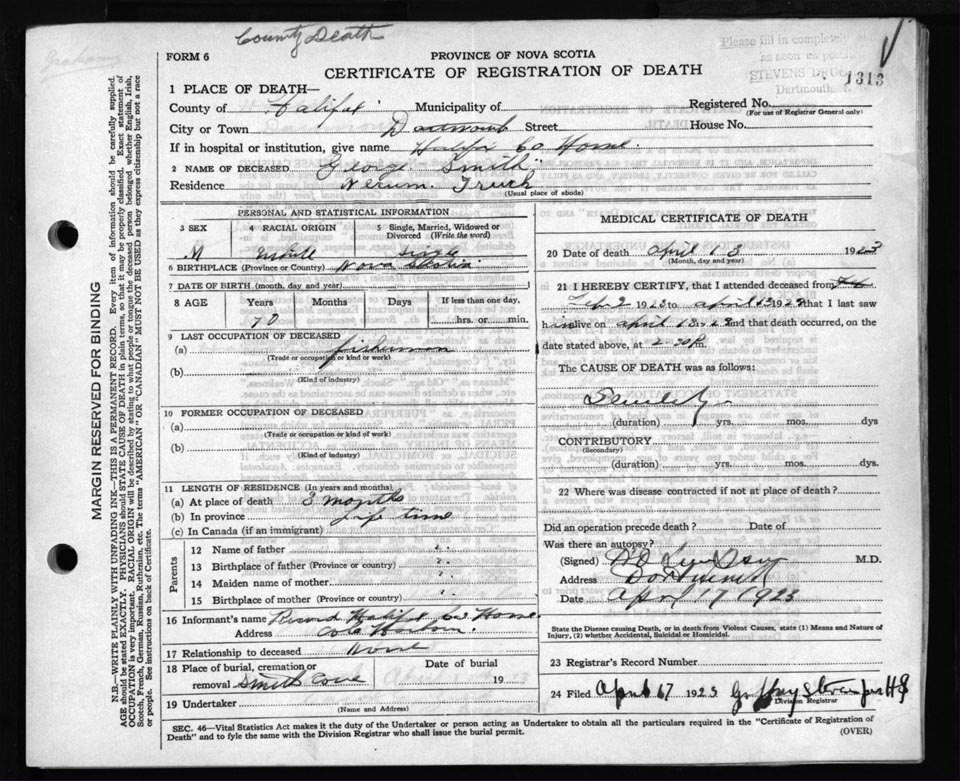 County Death
FORM 6
PROVINCE OF NOVA SCOTIA
CERTIFICATE OF REGISTRATION OF DEATH
Please fill in completely
as soon as
STEVENS
Dartmouth, N.S.
1313
1 PLACE OF DEATH—
County of Halifax Municipality of Registered No.
(For use of Registrar General only)
City or Town Street House No.
If in hospital or institution, give name Halifax Co Home.
2 NAME OF DECEASED George Smith
Residence
(Usual place of abode)
PERSONAL AND STATISTICAL INFORMATION
3 SEX 4 RACIAL ORIGIN 5 Single, Married, Widowed or Divorced (Write the word)
M White Single
6 BIRTHPLACE (Province or Country) Nova Scotia
7 DATE OF BIRTH (month, day and year)
8 AGE Years Months Days If less than one day,
70 hrs. or min.
9 LAST OCCUPATION OF DECEASED
(a) fisherman
(Trade or occupation or kind or work)
(b)
(Kind of industry)
10 FORMER OCCUPATION OF DECEASED
(a)
(Trade or occupation or kind of work)
(b)
(Kind of industry)
11 LENGTH OF RESIDENCE (In years and months)
(a) At place of death 3 months
(b) In province life time
(c) In Canada (if an immigrant)
Parents
12 Name of father
13 Birthplace of father (Province or country)
14 Maiden name of mother
15 Birthplace of mother (Province or country)
16 Informant's name Record Halifax Co Home
Address Cole Harbour
17 Relationship to deceased None
18 Place of burial, cremation or removal Smith Cove
Date of burial
19
19 Undertaker
(Name and Address)
MEDICAL CERTIFICATE OF DEATH
20 Date of death April 13 1923
(Month, day and year)
21 I HEREBY CERTIFY, that I attended deceased from
1923 to April 13 1923 that I last saw
him alive on April 13 23 and that death occurred, on
date stated above, at 2-20 P.m.
The CAUSE OF DEATH was as follows:
Senility
(duration) yrs. mos. dys
CONTRIBUTORY
(Secondary)
(duration) yrs. mos. dys.
22 Where was disease contracted if not at place of death?
Did an operation precede death? Date of
Was there an autopsy?
(Signed) M.D.
Address Dartmouth
Date April 17 1923
State the Disease causing Death, or in death from Violent Causes, state (1) Means and Nature of Injury, (2) whether Accidental, Suicidal or Homicidal.
23 Registrar's Record Number
24 Filed April 17 1923
Division Registrar
SEC. 46—Vital Statistics Act makes it the duty of the Undertaker or person acting as Undertaker to obtain all the particulars required in the "Certificate of Registration of
Death" and to fyle the same with the Division Registrar who shall issue the burial permit.
(OVER)
MARGIN RESERVED FOR BINDING
N.B.—WRITE PLAINLY WITH UNFADING INK—THIS IS A PERMANENT RECORD. Every item of information should be carefully supplied.
AGE should be stated EXACTLY. PHYSICIANS should STATE CAUSE OF DEATH in plain terms, so that it may be properly classified. Exact statement of
OCCUPATION is very important. RACIAL ORIGIN will be described by stating to what people or tongue the deceased person belonged whether English, Irish,
Scotch, French, German, Russian, Ruthenian, etc. The terms "AMERICAN" OR "CANADIAN" MUST NOT BE USED as they express citizenship but not a race
or people. See instructions on back of Certificate.